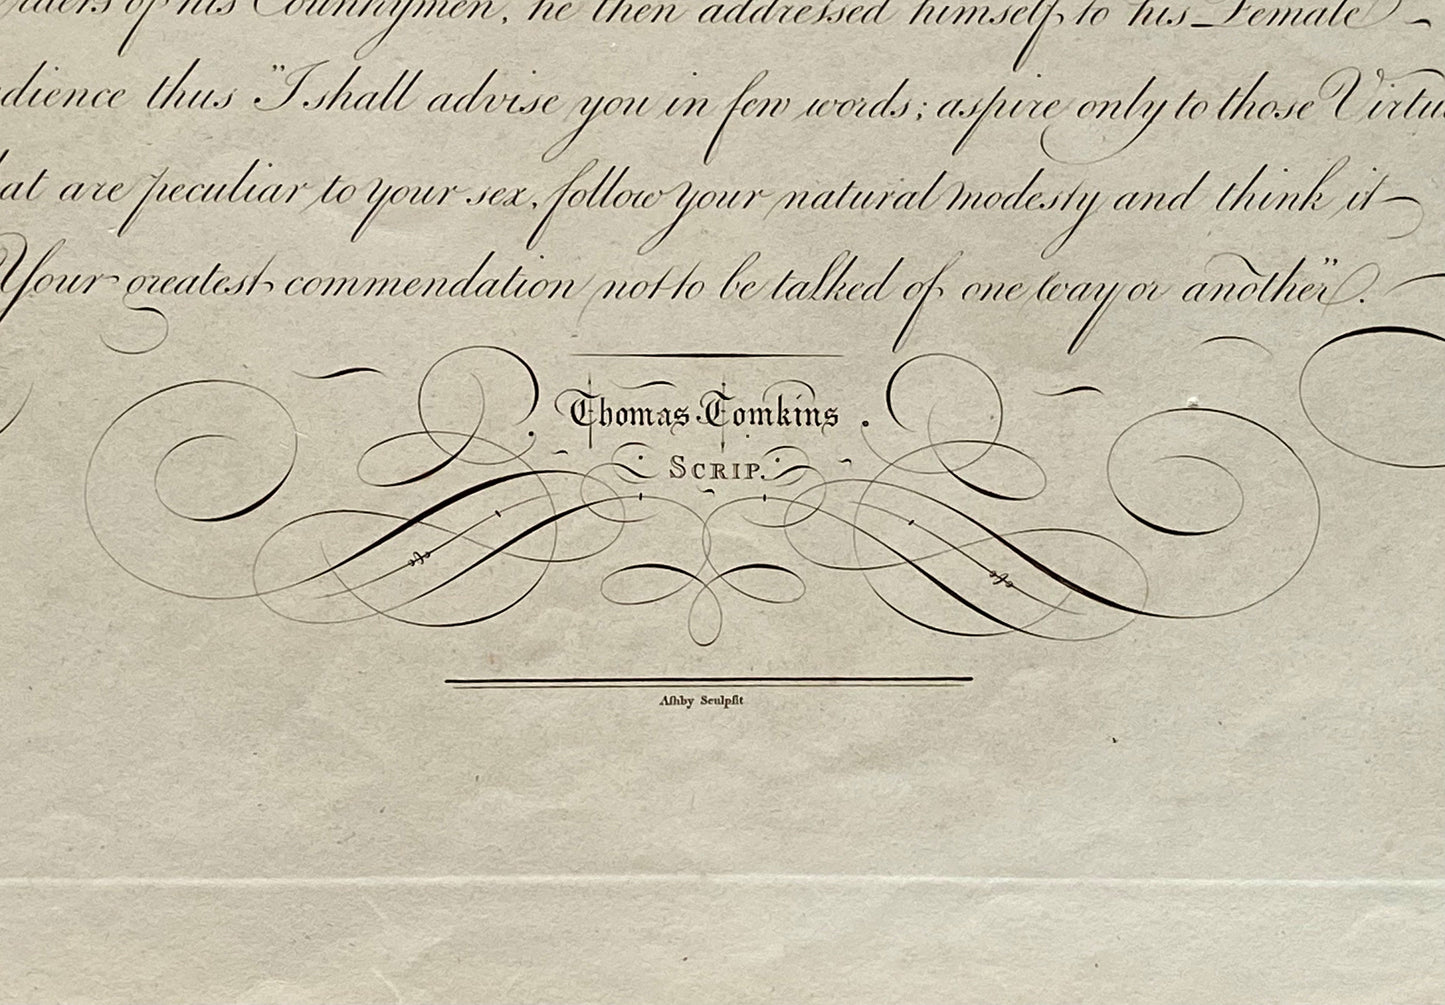 of his Countrymen, he then addressed himself to his Female
dience thus "I shall advise you in few words; aspire only to those Virtu
at are peculiar to your sex, follow your natural modesty and think it
Your greatest commendation not to be talked of one way or another".
Thomas Tomkins.
SCRIP.
Aſhby Sculpſit